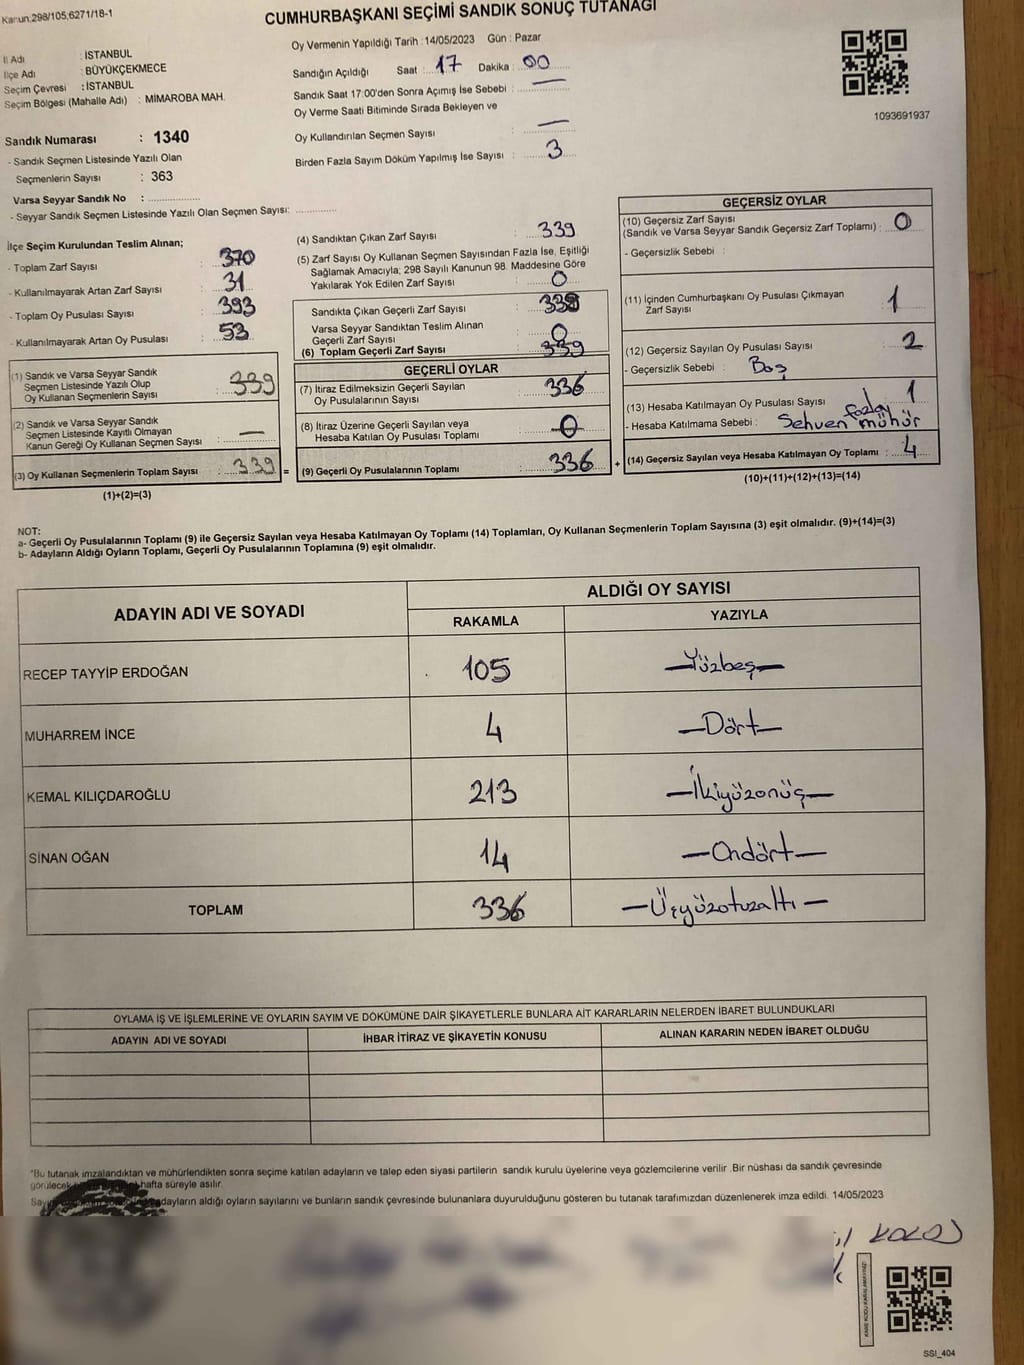 Kanun:298/105;6271/18-1
CUMHURBAŞKANI SEÇİMİ SANDIK SONUÇ TUTANAĞI
İl Adı : İSTANBUL
İlçe Adı : BÜYÜKÇEKMECE
Seçim Çevresi : İSTANBUL
Seçim Bölgesi (Mahalle Adı) : MİMAROBA MAH.
Sandık Numarası : 1340
- Sandık Seçmen Listesinde Yazılı Olan
Seçmenlerin Sayısı : 363
Varsa Seyyar Sandık No :
- Seyyar Sandık Seçmen Listesinde Yazılı Olan Seçmen Sayısı:
Oy Vermenin Yapıldığı Tarih : 14/05/2023 Gün : Pazar
Sandığın Açıldığı Saat : 17 Dakika : 00
Sandık Saat 17:00'den Sonra Açımış İse Sebebi : —
Oy Verme Saati Bitiminde Sırada Bekleyen ve
Oy Kullandırılan Seçmen Sayısı : —
Birden Fazla Sayım Döküm Yapılmış İse Sayısı : 3
1093691937
İlçe Seçim Kurulundan Teslim Alınan;
- Toplam Zarf Sayısı : 370
- Kullanılmayarak Artan Zarf Sayısı : 31
- Toplam Oy Pusulası Sayısı : 393
- Kullanılmayarak Artan Oy Pusulası : 53
(1) Sandık ve Varsa Seyyar Sandık
Seçmen Listesinde Yazılı Olup
Oy Kullanan Seçmenlerin Sayısı : 339
(2) Sandık ve Varsa Seyyar Sandık
Seçmen Listesinde Kayıtlı Olmayan
Kanun Gereği Oy Kullanan Seçmen Sayısı : —
(3) Oy Kullanan Seçmenlerin Toplam Sayısı : 339 =
(1)+(2)=(3)
(4) Sandıktan Çıkan Zarf Sayısı : 339
(5) Zarf Sayısı Oy Kullanan Seçmen Sayısından Fazla İse, Eşitliği
Sağlamak Amacıyla; 298 Sayılı Kanunun 98. Maddesine Göre
Yakılarak Yok Edilen Zarf Sayısı : 0
Sandıkta Çıkan Geçerli Zarf Sayısı : 339
Varsa Seyyar Sandıktan Teslim Alınan
Geçerli Zarf Sayısı : 0
(6) Toplam Geçerli Zarf Sayısı : 339
GEÇERLİ OYLAR
(7) İtiraz Edilmeksizin Geçerli Sayılan
Oy Pusulalarının Sayısı : 336
(8) İtiraz Üzerine Geçerli Sayılan veya
Hesaba Katılan Oy Pusulası Toplamı : 0
(9) Geçerli Oy Pusulalarının Toplamı : 336 +
GEÇERSİZ OYLAR
(10) Geçersiz Zarf Sayısı
(Sandık ve Varsa Seyyar Sandık Geçersiz Zarf Toplamı) : 0
- Geçersizlik Sebebi :
(11) İçinden Cumhurbaşkanı Oy Pusulası Çıkmayan
Zarf Sayısı : 1
(12) Geçersiz Sayılan Oy Pusulası Sayısı : 2
- Geçersizlik Sebebi : Boş
(13) Hesaba Katılmayan Oy Pusulası Sayısı : 1
- Hesaba Katılmama Sebebi : Sehven fazla mühür
(14) Geçersiz Sayılan veya Hesaba Katılmayan Oy Toplamı : 4
(10)+(11)+(12)+(13)=(14)
NOT:
a- Geçerli Oy Pusulalarının Toplamı (9) ile Geçersiz Sayılan veya Hesaba Katılmayan Oy Toplamı (14) Toplamları, Oy Kullanan Seçmenlerin Toplam Sayısına (3) eşit olmalıdır. (9)+(14)=(3)
b- Adayların Aldığı Oyların Toplamı, Geçerli Oy Pusulalarının Toplamına (9) eşit olmalıdır.
ADAYIN ADI VE SOYADI ALDIĞI OY SAYISI
RAKAMLA YAZIYLA
RECEP TAYYİP ERDOĞAN 105 —Yüzbeş—
MUHARREM İNCE 4 —Dört—
KEMAL KILIÇDAROĞLU 213 —İkiyüzonüç—
SİNAN OĞAN 14 —Ondört—
TOPLAM 336 —Üçyüzotuzaltı—
OYLAMA İŞ VE İŞLEMLERİNE VE OYLARIN SAYIM VE DÖKÜMÜNE DAİR ŞİKAYETLERLE BUNLARA AİT KARARLARIN NELERDEN İBARET BULUNDUKLARI
ADAYIN ADI VE SOYADI İHBAR İTİRAZ VE ŞİKAYETİN KONUSU ALINAN KARARIN NEDEN İBARET OLDUĞU
*Bu tutanak imzalandıktan ve mühürlendikten sonra seçime katılan adayların ve talep eden siyasi partilerin sandık kurulu üyelerine veya gözlemcilerine verilir .Bir nüshası da sandık çevresinde
görülecek hafta süreyle asılır.
adayların aldığı oyların sayılarını ve bunların sandık çevresinde bulunanlara duyurulduğunu gösteren bu tutanak tarafımızdan düzenlenerek imza edildi. 14/05/2023
SSI_404